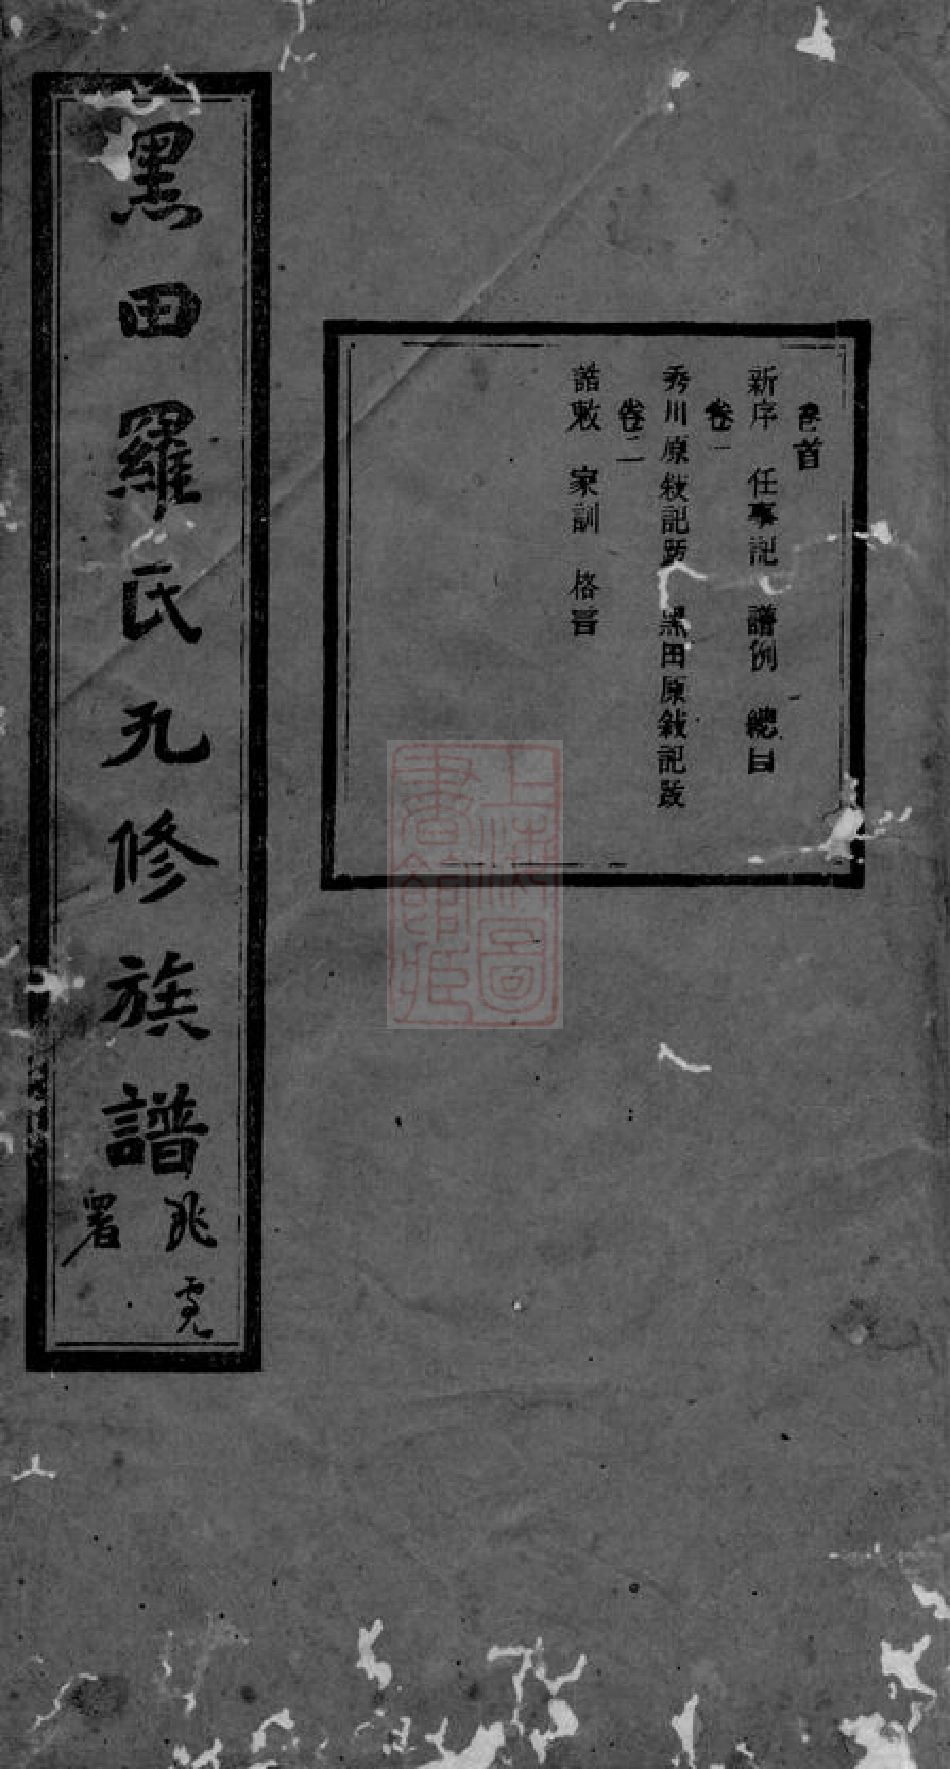 黑田羅氏九修族譜
兆霓
署
卷首
新序 任事記 譜例 總目
卷一
秀川原敍記跋 黑田原敍記跋
卷二
誥敕 家訓 格言
上海圖
書館藏